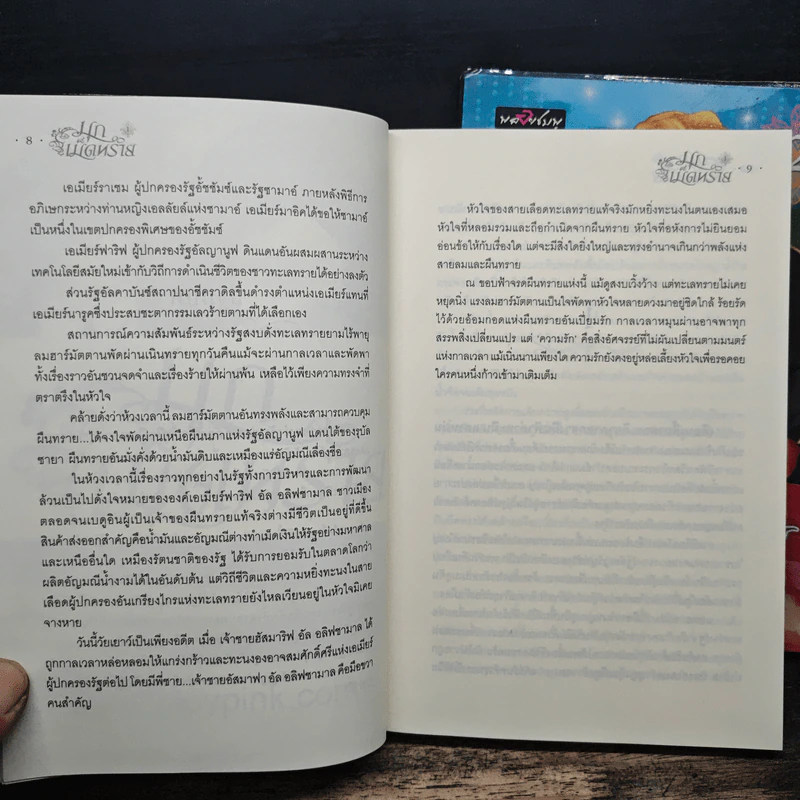 · 8 ·
มุก
เม็ดทราย
เอเมียร์ราเซม ผู้ปกครองรัฐอั้ซซัมซ์และรัฐซามาอ์ ภายหลังพิธีการ
อภิเษกระหว่างท่านหญิงเอลลัยล์แห่งซามาอ์ เอเมียร์มาอิคได้ขอให้ซามาอ์
เป็นหนึ่งในเขตปกครองพิเศษของอั้ซซัมซ์
เอเมียร์ฟาริฟ ผู้ปกครองรัฐอัลญานูฟ ดินแดนอันผสมผสานระหว่าง
เทคโนโลยีสมัยใหม่เข้ากับวิถีการดำเนินชีวิตของชาวทะเลทรายได้อย่างลงตัว
ส่วนรัฐอัลคาบันซ์สถาปนาชีคราดิลขึ้นดำรงตำแหน่งเอเมียร์แทนที่
เอเมียร์นารูคซึ่งประสบชะตากรรมเลวร้ายตามที่ได้เลือกเอง
สถานการณ์ความสัมพันธ์ระหว่างรัฐสงบดั่งทะเลทรายยามไร้พายุ
ลมฮาร์มัตตานพัดผ่านเนินทรายทุกวันคืนแม้จะผ่านกาลเวลาและพัดพา
ทั้งเรื่องราวอันชวนจดจำและเรื่องร้ายให้ผ่านพ้น เหลือไว้เพียงความทรงจำที่
ตราตรึงในหัวใจ
คล้ายดั่งว่าห้วงเวลานี้ ลมฮาร์มัตตานอันทรงพลังและสามารถควบคุม
ผืนทราย...ได้จงใจพัดผ่านเหนือผืนนภาแห่งรัฐอัลญานูฟ แดนใต้ของรุบัล
ซายา ผืนทรายอันมั่งคั่งด้วยน้ำมันดิบและเหมืองแร่อัญมณีเลื่องชื่อ
ในห้วงเวลานี้เรื่องราวทุกอย่างในรัฐทั้งการบริหารและการพัฒนา
ล้วนเป็นไปดั่งใจหมายขององค์เอเมียร์ฟาริฟ อัล อลิฟซามาล ชาวเมือง
ตลอดจนเบดูอินผู้เป็นเจ้าของผืนทรายแท้จริงต่างมีชีวิตเป็นอยู่ที่ดีขึ้น
สินค้าส่งออกสำคัญคือน้ำมันและอัญมณีต่างทำเม็ดเงินให้รัฐอย่างมหาศาล
และเหนืออื่นใด เหมืองรัตนชาติของรัฐ ได้รับการยอมรับในตลาดโลกว่า
ผลิตอัญมณีน้ำงามได้ในอันดับต้น แต่วิถีชีวิตและความหยิ่งทะนงในสาย
เลือดผู้ปกครองอันเกรียงไกรแห่งทะเลทรายยังไหลเวียนอยู่ในหัวใจมิเคย
จางหาย
วันนี้วัยเยาว์เป็นเพียงอดีต เมื่อ เจ้าชายฮัสมาริฟ อัล อลิฟซามาล ได้
ถูกกาลเวลาหล่อหลอมให้แกร่งกร้าวและทะนงองอาจสมศักดิ์ศรีแห่งเอเมียร์
ผู้ปกครองรัฐต่อไป โดยมีพี่ชาย...เจ้าชายอัสมาฟา อัล อลิฟซามาล คือมือขวา
คนสำคัญ
มุก
เม็ดทราย
· 9 ·
หัวใจของสายเลือดทะเลทรายแท้จริงมักหยิ่งทะนงในตนเองเสมอ
หัวใจที่หลอมรวมและถือกำเนิดจากผืนทราย หัวใจที่อหังการไม่ยินยอม
อ่อนข้อให้กับเรื่องใด แต่จะมีสิ่งใดยิ่งใหญ่และทรงอำนาจเกินกว่าพลังแห่ง
สายลมและผืนทราย
ณ ขอบฟ้าจรดผืนทรายแห่งนี้ แม้ดูสงบเวิ้งว้าง แต่ทะเลทรายไม่เคย
หยุดนิ่ง แรงลมฮาร์มัตตานเป็นใจพัดพาหัวใจหลายดวงมาอยู่ชิดใกล้ ร้อยรัด
ไว้ด้วยอ้อมกอดแห่งผืนทรายอันเปี่ยมรัก กาลเวลาหมุนผ่านอาจพาทุก
สรรพสิ่งเปลี่ยนแปร แต่ ‘ความรัก’ คือสิ่งอัศจรรย์ที่ไม่ผันเปลี่ยนตามมนตร์
แห่งกาลเวลา แม้เนิ่นนานเพียงใด ความรักยังคงอยู่หล่อเลี้ยงหัวใจเพื่อรอคอย
ใครคนหนึ่งก้าวเข้ามาเติมเต็ม
พลอยชมพู